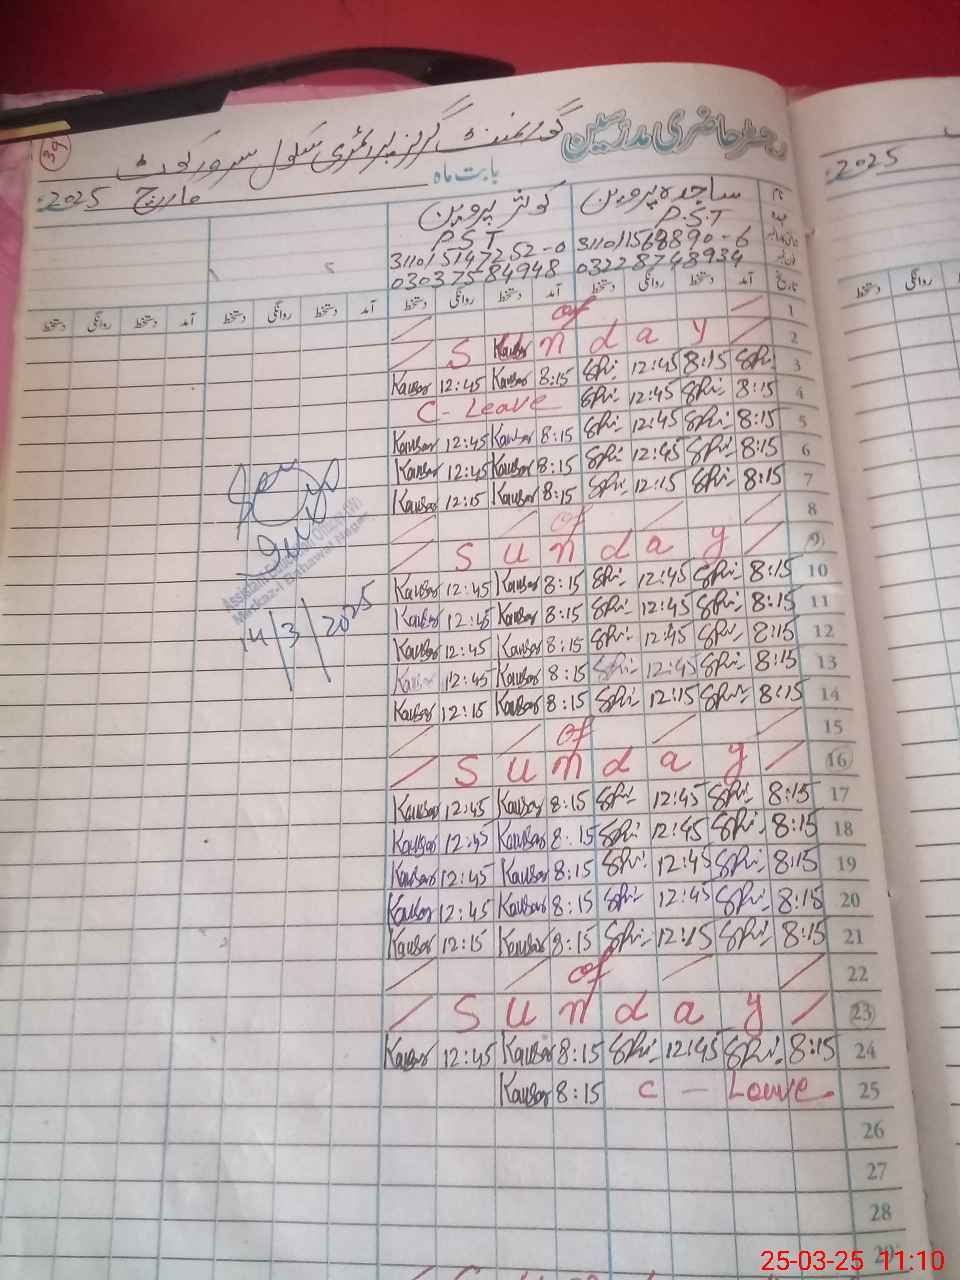 39
رجسٹر حاضری مدرسین گورنمنٹ گرلز پرائمری سکول سرور کوٹ
بابت ماہ مارچ 2025
2025
نام ساجدہ پروین کوثر پروین
P.S.T P.S.T
31101-1568890-6 31101-5147252-0
03228748934 03037584948
تاریخ آمد دستخط روانگی دستخط آمد دستخط روانگی دستخط آمد دستخط روانگی دستخط آمد دستخط روانگی دستخط
/ of / 1
/ S Kausar n d a y / 2
Kausar 12:45 Kausar 8:15 12:45 8:15 3
C - Leave 12:45 8:15 4
Kausar 12:45 Kausar 8:15 12:45 8:15 5
Kausar 12:45 Kausar 8:15 12:45 8:15 6
Kausar 12:15 Kausar 8:15 12:15 8:15 7
/ / of / / 8
/ S u n d a y / 9
Kausar 12:45 Kausar 8:15 12:45 8:15 10
Kausar 12:45 Kausar 8:15 12:45 8:15 11
Kausar 12:45 Kausar 8:15 12:45 8:15 12
Kausar 12:45 Kausar 8:15 12:45 8:15 13
Kausar 12:15 Kausar 8:15 12:15 8:15 14
/ / of / / 15
/ S u n d a y / 16
Kausar 12:45 Kausar 8:15 12:45 8:15 17
Kausar 12:45 Kausar 8:15 12:45 8:15 18
Kausar 12:45 Kausar 8:15 12:45 8:15 19
Kausar 12:45 Kausar 8:15 12:45 8:15 20
Kausar 12:15 Kausar 8:15 12:15 8:15 21
/ / of / / 22
/ S u n d a y / 23
Kausar 12:45 Kausar 8:15 12:45 8:15 24
Kausar 8:15 C - Leave 25
26
27
28
29
Assistant Education Officer (W)
Markaz-I
14/3/2025
25-03-25 11:10